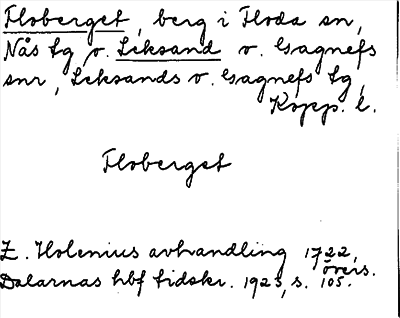 Floberget, berg i Floda sn,
Nås tg o. Leksand o. Gagnefs
snr, Leksands o. Gagnefs tg,
Kopp. l.
Floberget
Z. Holenius avhandling 1722,
övers.
Dalarnas hbf tidskr. 1923, s. 105.